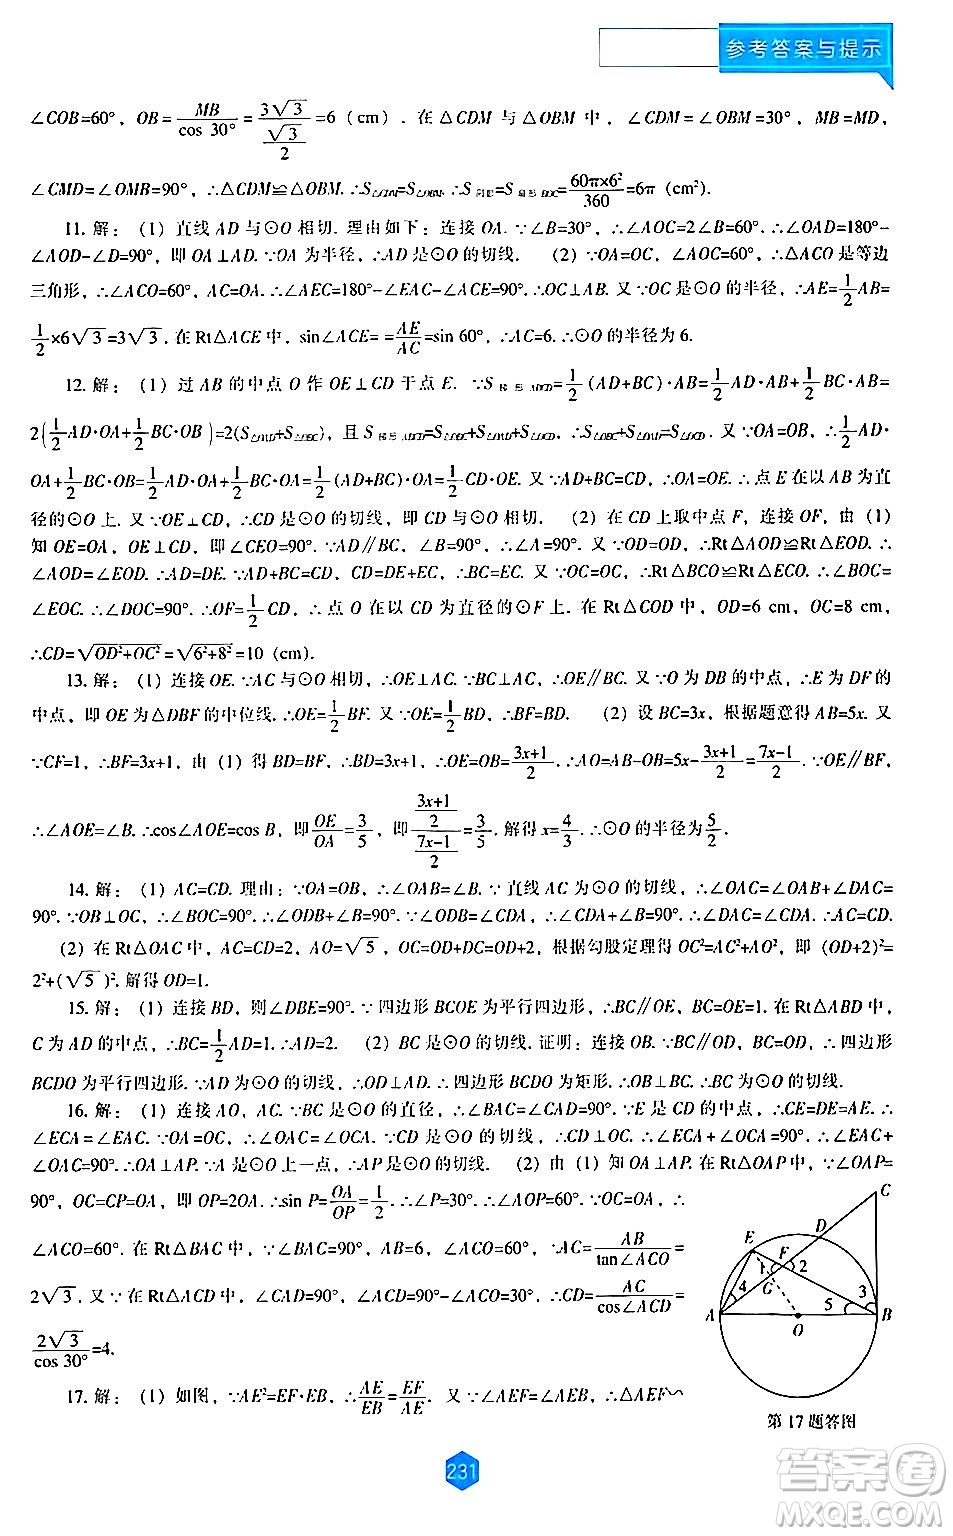 参考答案与提示
∠COB=60°，OB=MB/cos 30°=3√3/(√3/2)=6（cm）. 在△CDM 与△OBM 中，∠CDM=∠OBM=30°，MB=MD，
∠CMD=∠OMB=90°，∴△CDM≌△OBM. ∴S△CDM=S△OBM. ∴S阴影=S扇形BOC=60π×6²/360=6π（cm²）.
11. 解：（1）直线 AD 与⊙O 相切. 理由如下：连接 OA. ∵∠B=30°，∴∠AOC=2∠B=60°. ∴∠OAD=180°-
∠AOD-∠D=90°，即 OA⊥AD. ∵OA 为半径，∴AD 是⊙O 的切线. （2）∵OA=OC，∠AOC=60°，∴△ACO 是等边
三角形，∴∠ACO=60°，AC=OA. ∴∠AEC=180°-∠EAC-∠ACE=90°. ∴OC⊥AB. 又∵OC 是⊙O 的半径，∴AE=1/2AB=
1/2×6√3=3√3. 在 Rt△ACE 中，sin∠ACE= =AE/AC=sin 60°，∴AC=6. ∴⊙O 的半径为 6.
12. 解：（1）过 AB 的中点 O 作 OE⊥CD 于点 E. ∵S梯形ABCD=1/2（AD+BC）·AB=1/2AD·AB+1/2BC·AB=
2(1/2AD·OA+1/2BC·OB)=2(S△OAD+S△OBC)，且 S梯形ABCD=S△OBC+S△OAD+S△OCD，∴S△OBC+S△OAD=S△OCD. 又∵OA=OB，∴1/2AD·
OA+1/2BC·OB=1/2AD·OA+1/2BC·OA=1/2(AD+BC)·OA=1/2CD·OE. 又∵AD+BC=CD，∴OA=OE. ∴点 E 在以 AB 为直
径的⊙O 上. 又∵OE⊥CD，∴CD 是⊙O 的切线，即 CD 与⊙O 相切. （2）在 CD 上取中点 F，连接 OF，由（1）
知 OE=OA，OE⊥CD，即∠CEO=90°. ∵AD∥BC，∠B=90°，∴∠A=90°. 又∵OD=OD，∴Rt△AOD≌Rt△EOD. ∴
∠AOD=∠EOD. ∴AD=DE. ∵AD+BC=CD，CD=DE+EC，∴BC=EC. 又∵OC=OC，∴Rt△BCO≌Rt△ECO. ∴∠BOC=
∠EOC. ∴∠DOC=90°. ∴OF=1/2CD，∴点 O 在以 CD 为直径的⊙F 上. 在 Rt△COD 中，OD=6 cm，OC=8 cm，
∴CD=√(OD²+OC²)=√(6²+8²)=10（cm）.
13. 解：（1）连接 OE. ∵AC 与⊙O 相切，∴OE⊥AC. ∵BC⊥AC，∴OE∥BC. 又∵O 为 DB 的中点，∴E 为 DF 的
中点，即 OE 为△DBF 的中位线. ∴OE=1/2BF. 又∵OE=1/2BD，∴BF=BD. （2）设 BC=3x，根据题意得 AB=5x. 又
∵CF=1，∴BF=3x+1，由（1）得 BD=BF，∴BD=3x+1，∴OE=OB=(3x+1)/2. ∴AO=AB-OB=5x-(3x+1)/2=(7x-1)/2. ∵OE∥BF，
∴∠AOE=∠B. ∴cos∠AOE=cos B，即OE/OA=3/5，即((3x+1)/2)/((7x-1)/2)=3/5. 解得 x=4/3. ∴⊙O 的半径为5/2.
14. 解：（1）AC=CD. 理由：∵OA=OB，∴∠OAB=∠B. ∵直线 AC 为⊙O 的切线，∴∠OAC=∠OAB+∠DAC=
90°. ∵OB⊥OC，∴∠BOC=90°. ∴∠ODB+∠B=90°. ∵∠ODB=∠CDA，∴∠CDA+∠B=90°. ∴∠DAC=∠CDA. ∴AC=CD.
（2）在 Rt△OAC 中，AC=CD=2，AO=√5，OC=OD+DC=OD+2，根据勾股定理得 OC²=AC²+AO²，即（OD+2）²=
2²+(√5)². 解得 OD=1.
15. 解：（1）连接 BD，则∠DBE=90°. ∵四边形 BCOE 为平行四边形，∴BC∥OE，BC=OE=1. 在 Rt△ABD 中，
C 为 AD 的中点，∴BC=1/2AD=1. ∴AD=2. （2）BC 是⊙O 的切线. 证明：连接 OB. ∵BC∥OD，BC=OD，∴四边形
BCDO 为平行四边形. ∵AD 为⊙O 的切线，∴OD⊥AD. ∴四边形 BCDO 为矩形. ∴OB⊥BC. ∴BC 是⊙O 的切线.
16. 解：（1）连接 AO，AC. ∵BC 是⊙O 的直径，∴∠BAC=∠CAD=90°. ∵E 是 CD 的中点，∴CE=DE=AE. ∴
∠ECA=∠EAC. ∵OA=OC，∴∠OAC=∠OCA. ∵CD 是⊙O 的切线，∴CD⊥OC. ∴∠ECA+∠OCA=90°. ∴∠EAC+
∠OAC=90°. ∴OA⊥AP. ∵A 是⊙O 上一点，∴AP 是⊙O 的切线. （2）由（1）知 OA⊥AP. 在 Rt△OAP 中，∵∠OAP=
90°，OC=CP=OA，即 OP=2OA. ∴sin P=OA/OP=1/2. ∴∠P=30°. ∴∠AOP=60°. ∵OC=OA，∴
∠ACO=60°. 在 Rt△BAC 中，∵∠BAC=90°，AB=6，∴AC=AB/tan∠ACO=
2√3. 又∵在 Rt△ACD 中，∠CAD=90°，∠ACD=90°-∠ACO=30°，∴CD=AC/cos∠ACD=
2√3/cos 30°=4.
17. 解：（1）如图，∵AE²=EF·EB，∴AE/EB=EF/AE. 又∵∠AEF=∠AEB，∴△AEF∽
C
D
E
F
1
2
G
4
3
5
A
B
O
第 17 题答图
231
答案圈
MXQE.COM